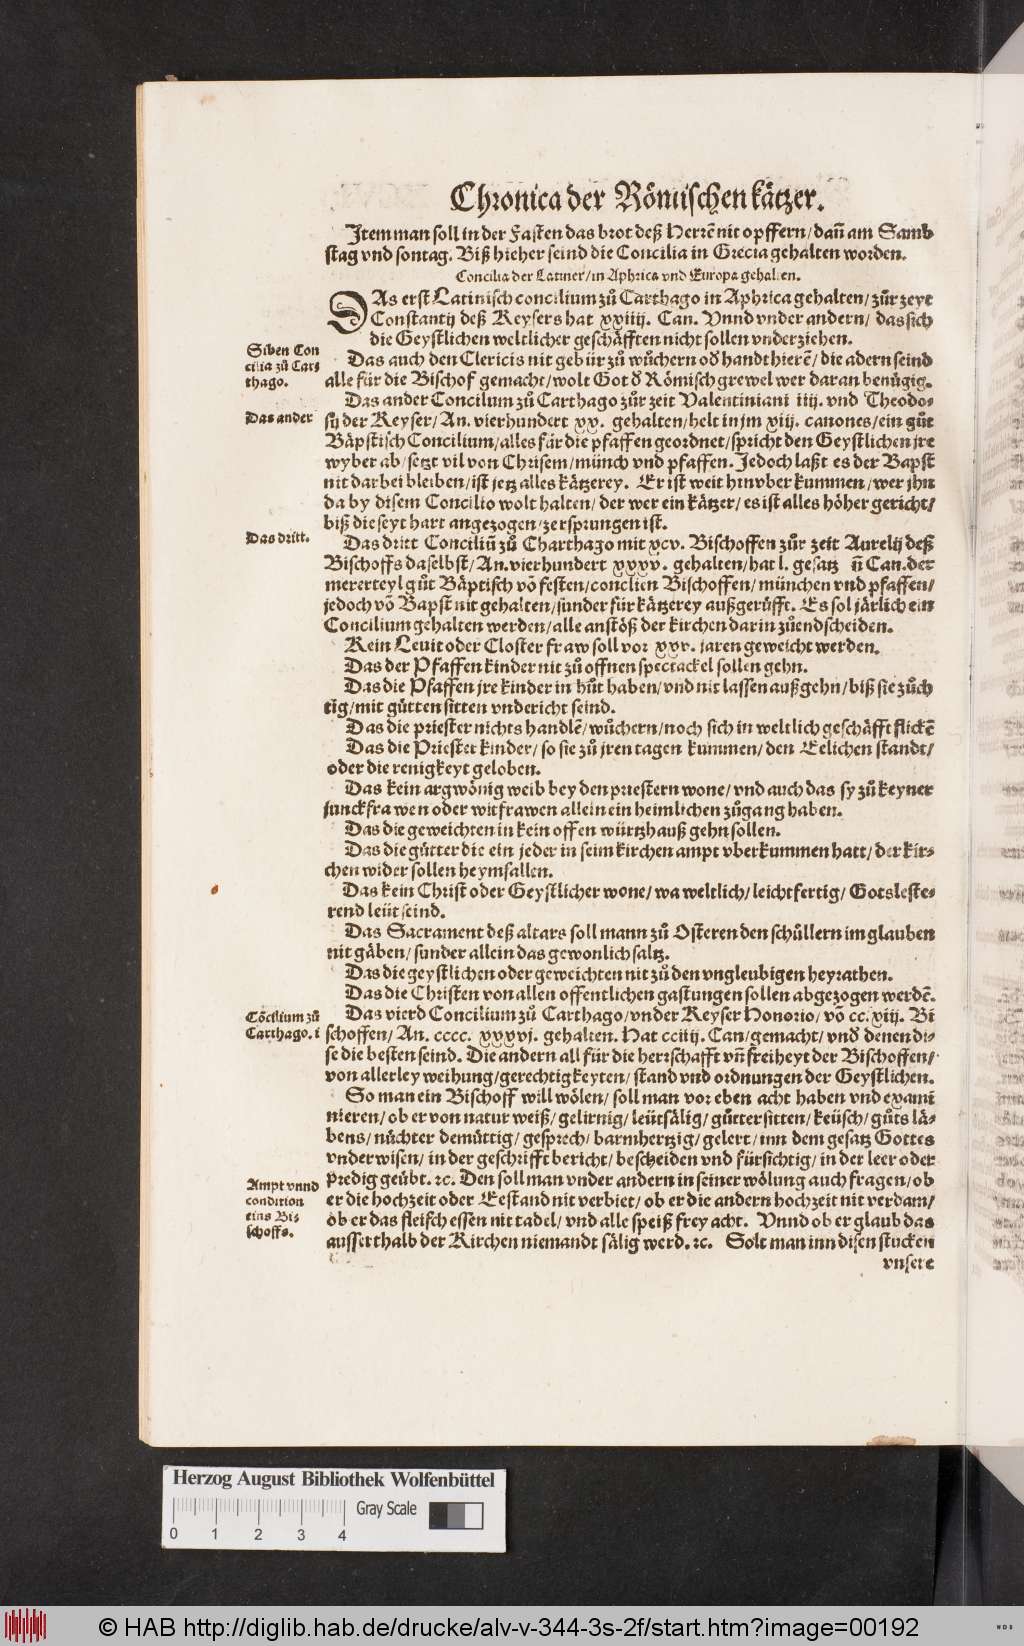 Chronica der Römischen kätzer.
Item man soll in der Fasten das brot deß Herrē nit opffern/ dañ am Samb
stag vnd sontag. Biß hieher seind die Concilia in Grecia gehalten worden.
Concilia der Latiner/ in Aphrica vnd Europa gehalten.
DAs erst Latinisch concilium zů Carthago in Aphrica gehalten/ zůr zeyt
Constantij deß Keysers hat xxiiij. Can. Vnnd vnder andern/ das sich
die Geystlichen weltlicher geschäfften nicht sollen vnderziehen.
Siben Con
cilia zů Car⸗
thago.
Das auch den Clericis nit gebür zů wůchern od̕ handthierē/ die adern seind
alle für die Bischof gemacht/ wolt Got d̕ Römisch grewel wer daran benügig.
Das ander Concilum zů Carthago zůr zeit Valentiniani iiij. vnd Theodo⸗
Das ander
sij der Keyser/ An. vierhundert xx. gehalten/ helt in jm xiij. canones/ ein gůt
Bäpstisch Concilium/ alles für die pfaffen geordnet/ spricht den Geystlichen jre
wyber ab/ setzt vil von Chrisem/ münch vnd pfaffen. Jedoch laßt es der Bapst
nit darbei bleiben/ ist jetz alles kätzerey. Er ist weit hinvber kummen/ wer jhn
da by disem Concilio wolt halten/ der wer ein kätzer/ es ist alles höher gericht/
biß die seyt hart angezogen/ zersprungen ist.
Das dritt.
Das dritt Conciliū zů Charthago mit xcv. Bischoffen zůr zeit Aurelij deß
Bischoffs daselbst/ An. vierhundert xxxv. gehalten/ hat l. gesatz uñ Can. der
mererteyl gůt Bäptisch vō festen/ conclien Bischoffen/ münchen vnd pfaffen/
jedoch vō Bapst nit gehalten/ sunder für kätzerey außgerůfft. Es sol järlich ein
Concilium gehalten werden/ alle anstöß der kirchen darin zůendscheiden.
Kein Leuit oder Closter fraw soll vor xxv. jaren geweicht werden.
Das der Pfaffen kinder nit zů offnen spectackel sollen gehn.
Das die Pfaffen jre kinder in hůt haben/ vnd nit lassen außgehn/ biß sie züch
tig/ mit gůtten sitten vndericht seind.
Das die priester nichts handlē/ wůchern/ noch sich in weltlich geschäfft flickē
Das die Priester kinder/ so sie zů jren tagen kummen/ den Eelichen standt/
oder die renigkeyt geloben.
Das kein argwönig weib bey den priestern wone/ vnd auch das sy zů keyner
junckfrawen oder witfrawen allein ein heimlichen zůgang haben.
Das die geweichten in kein offen würtzhauß gehn sollen.
Das die gütter die ein jeder in seim kirchen ampt vberkummen hatt/ der kir⸗
chen wider sollen heymfallen.
Das kein Christ oder Geystlicher wone/ wa weltlich/ leichtfertig/ Gotsleste⸗
rend leüt seind.
Das Sacrament deß altars soll mann zů Osteren den schůllern im glauben
nit gäben/ sunder allein das gewonlich saltz.
Das die geystlichen oder geweichten nit zů den vngleubigen heyrathen.
Das die Christen von allen offentlichen gastungen sollen abgezogen werdē.
Das vierd Concilium zů Carthago/ vnder Keyser Honorio/ vō cc. xiij. Bi
Cōcilium zů
Carthago. i
schoffen/ An. cccc. xxxvj. gehalten. Hat cciiij. Can/ gemacht/ vnd̕ denen di⸗
se die besten seind. Die andern all für die herrschafft vñ freiheyt der Bischoffen/
von allerley weihung/ gerechtigkeyten/ stand vnd ordnungen der Geystlichen.
So man ein Bischoff will wölen/ soll man vor eben acht haben vnd examī
nieren/ ob er von natur weiß/ gelirnig/ leütsälig/ gůtter sitten/ keüsch/ gůts lä⸗
bens/ nůchter demüttig/ gesprech/ barmhertzig/ gelert/ inn dem gesatz Gottes
vnderwisen/ in der geschrifft bericht/ bescheiden vnd fürsichtig/ in der leer oder
predig geübt. ꝛc. Den soll man vnder andern in seiner wölung auch fragen/ ob
Ampt vnnd
condition
eins Bi⸗
schoffs.
er die hochzeit oder Eestand nit verbiet/ ob er die andern hochzeit nit verdam/
ob er das fleisch essen nit tadel/ vnd alle speiß frey acht. Vnnd ob er glaub das
ausserthalb der Kirchen niemandt sälig werd. ꝛc. Solt man inn disen stucken
vnsere
Herzog August Bibliothek Wolfenbüttel
Gray Scale
0 1 2 3 4
© HAB http://diglib.hab.de/drucke/alv-v-344-3s-2f/start.htm?image=00192